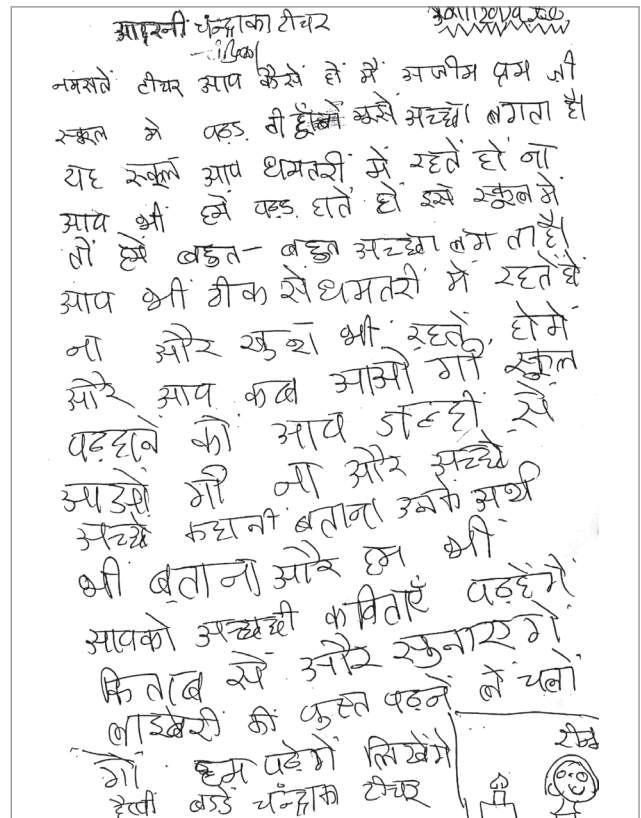 आदरनी चंन्द्राका टीचर
नमसते टीचर आप कैसे हो मैं अजीम प्रम जी
स्कूल मे पढ़ड़ ती हूँ मुझे अच्छा लगता है।
यह स्कूल आप धमतरी में रहते हो ना
आप भी हमे पढ़ड़ हाते हो इसे स्कूल में
तो हमे बहुत- बहुत अच्छा लग ता है।
आप भी ठीक से धमतरी में रहते हो
ना और खुश भी रहते, होगे
और आप कब आओ गी स्कूल
पढ़हाने को आप जल्दी से
आइओ गी ना और अच्छे
अच्छे कहानी बताना उनके अर्थ
भी बताना और हम भी
आपको अच्छछी कविताएँ पढ़हेगें
किताब से और सुनाएगे
लाइबेरी की पुस्त पढ़ने ले चलो
गी हम पढ़ेगे लिखेगे
हैप्पी बडडे चंन्द्राका टीचर